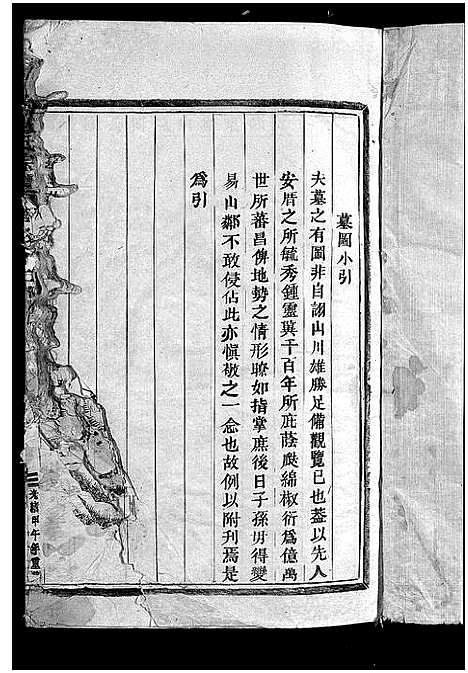 墓圖小引
夫墓之有圖非自詡山川雄勝足備觀覽已也葢以先人
安厝之所毓秀鍾靈冀千百年所庇蔭瓞綿椒衍爲億萬
世所蕃昌俾地勢之情形瞭如指掌庶後日子孫毋得變
易山鄰不敢侵佔此亦愼敬之一念也故例以附刊焉是
爲引
光緒甲午年重